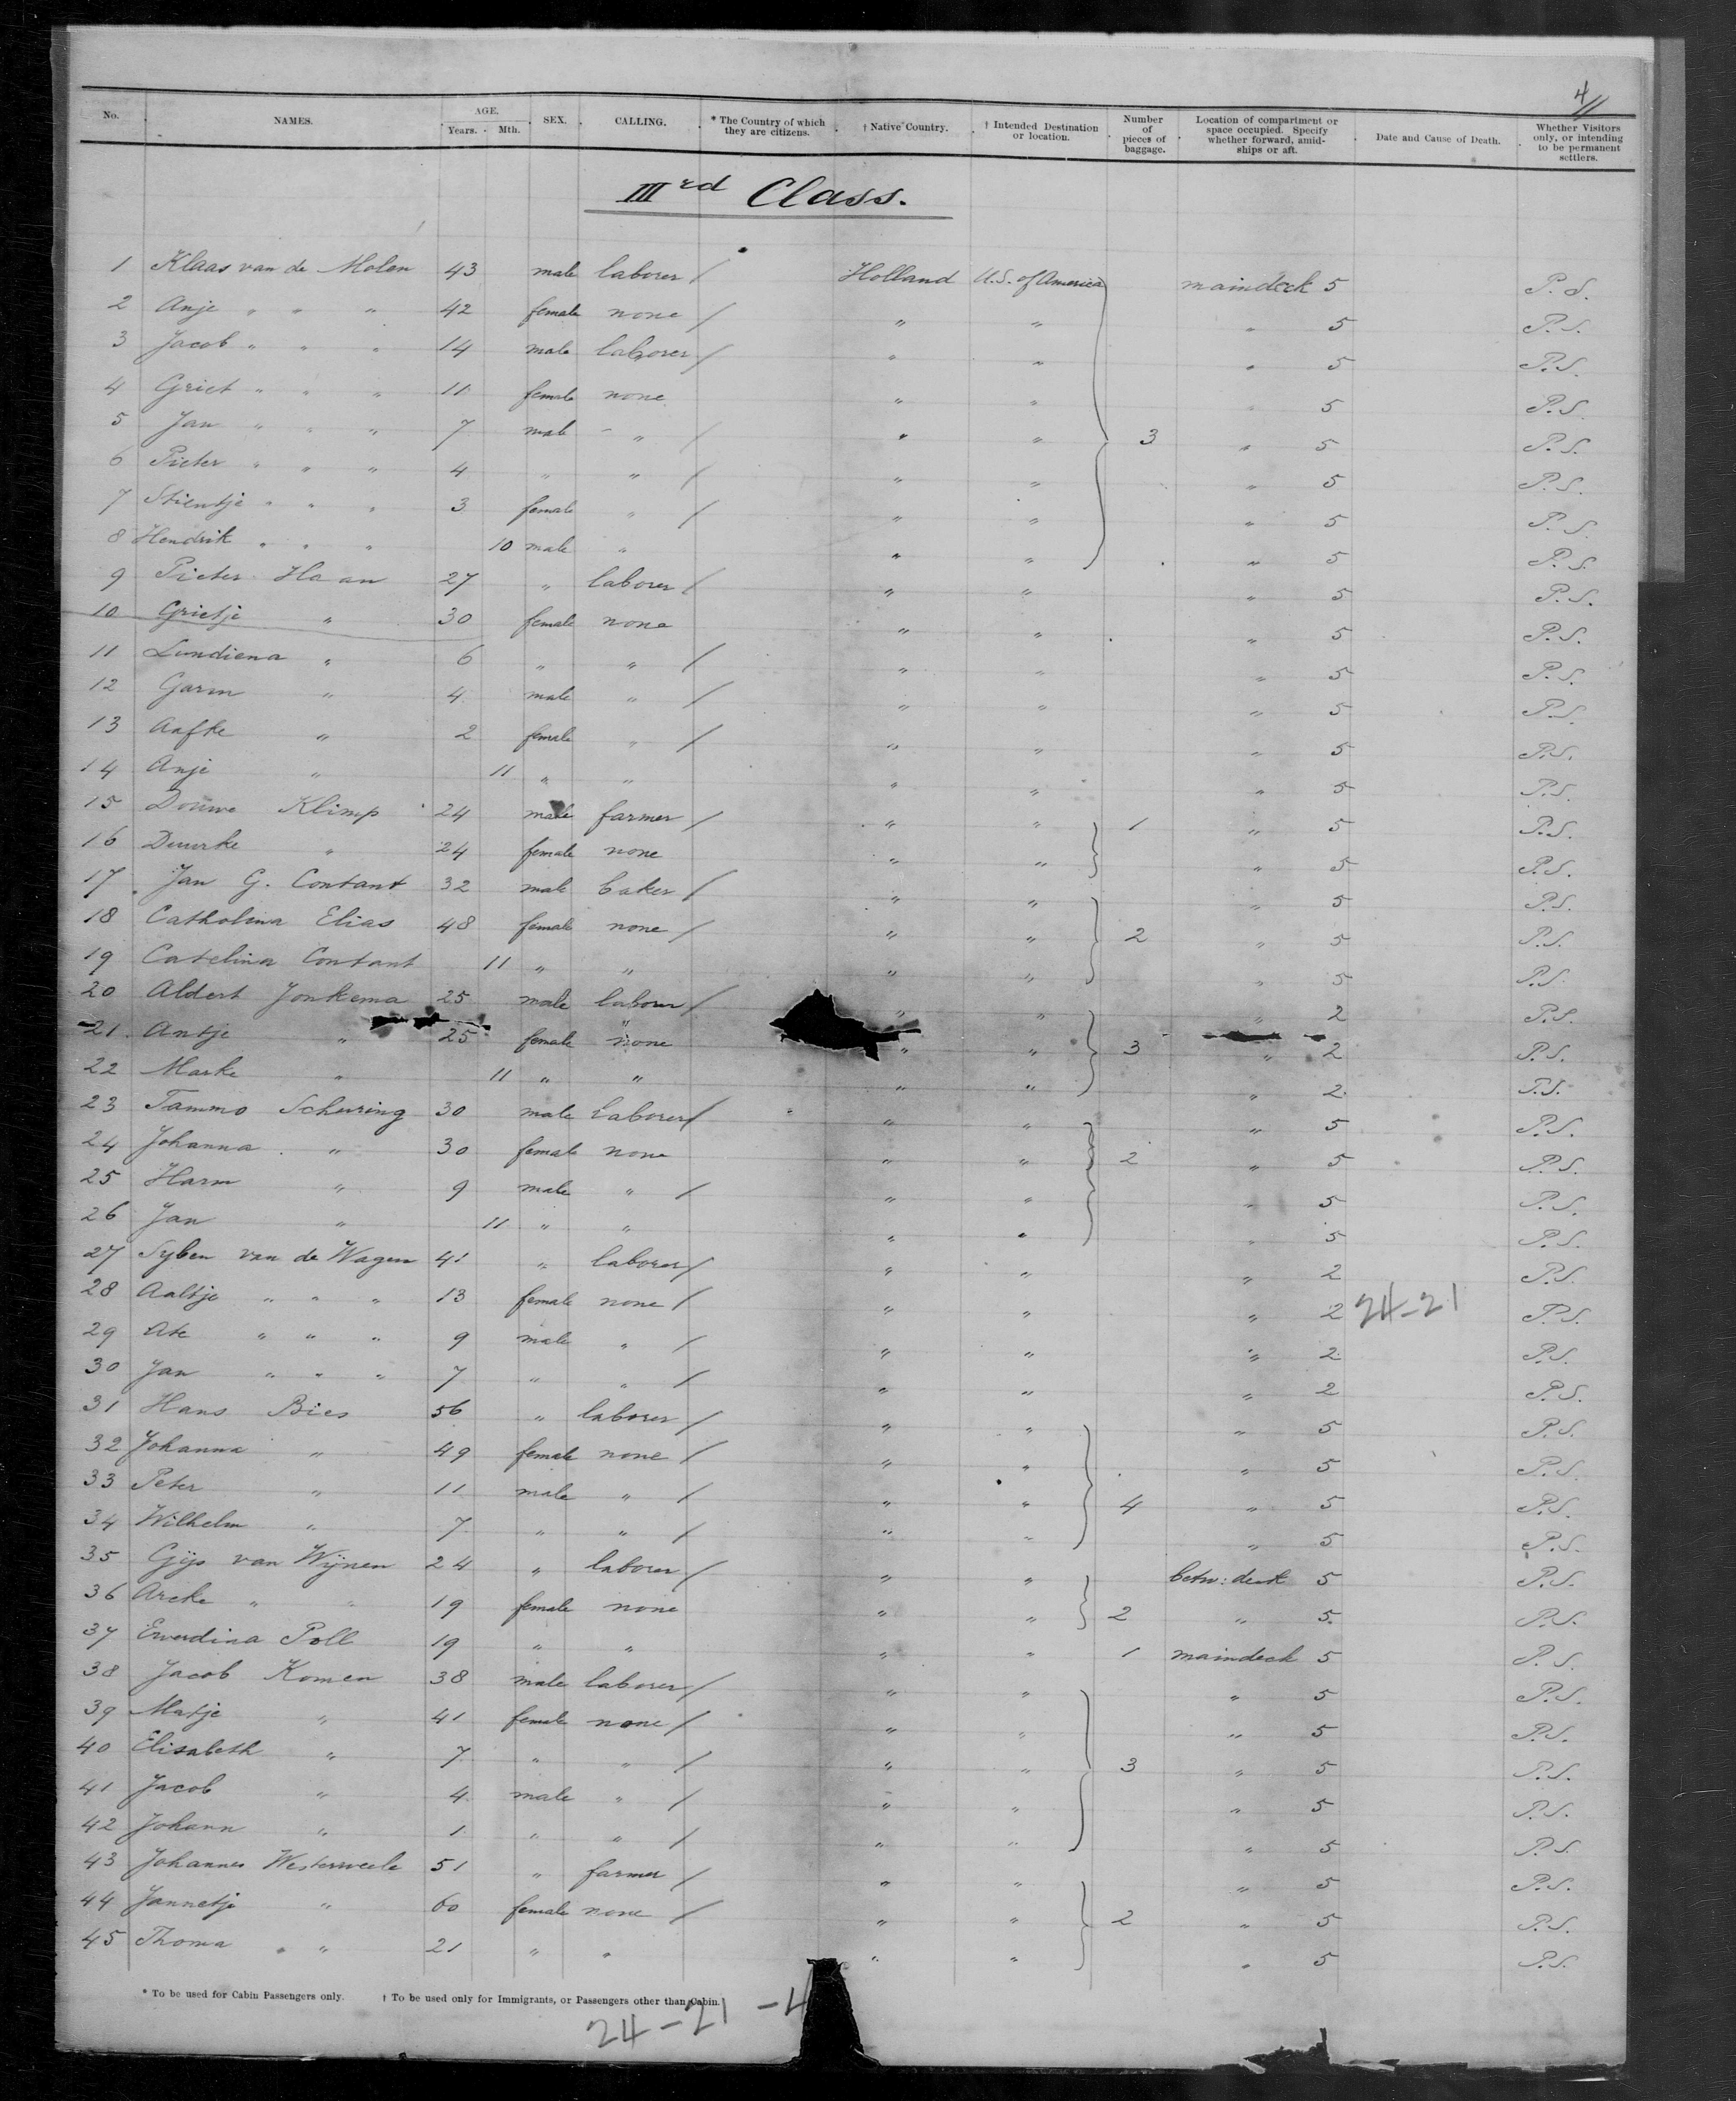 4/11
No. NAMES. AGE. Years. Mth. SEX. CALLING. * The Country of which they are citizens. † Native Country. † Intended Destination or location. Number of pieces of baggage. Location of compartment or space occupied. Specify whether forward, amidships or aft. Date and Cause of Death. Whether Visitors only, or intending to be permanent settlers.
IIIrd Class.
1 Klaas van de Molen 43 male laborer / Holland U.S. of America maindeck 5 P.S.
2 Anje " " " 42 female none / " " " 5 P.S.
3 Jacob " " " 14 male laborer / " " " 5 P.S.
4 Griet " " " 11 female none " " " 5 P.S.
5 Jan " " " 7 male " / " " 3 " 5 P.S.
6 Pieter " " " 4 " " / " " " 5 P.S.
7 Stientje " " " 3 female " / " " " 5 P.S.
8 Hendrik " " " 10 male " " " " 5 P.S.
9 Pieter Haan 27 " laborer / " " " 5 P.S.
10 Grietje " 30 female none " " " 5 P.S.
11 Lundiena " 6 " " / " " " 5 P.S.
12 Garm " 4 male " / " " " 5 P.S.
13 Aafke " 2 female " / " " " 5 P.S.
14 Anje " 11 " " " " " 5 P.S.
15 Douwe Klimp 24 male farmer / " " 1 " 5 P.S.
16 Deuwrke " 24 female none " " " 5 P.S.
17 Jan G. Contant 32 male baker / " " " 5 P.S.
18 Catholina Elias 48 female none / " " 2 " 5 P.S.
19 Catelina Contant 11 " " " " " 5 P.S.
20 Aldert Jonkema 25 male laborer / " " " 2 P.S.
21 Antje " 25 female none " " 3 " 2 P.S.
22 Marke " 11 " " " " " 2 P.S.
23 Tammo Scheuring 30 male laborer / " " " 5 P.S.
24 Johanna " 30 female none " " 2 " 5 P.S.
25 Harm " 9 male " / " " " 5 P.S.
26 Jan " 11 " " " " " 5 P.S.
27 Syben van de Wagen 41 " laborer / " " " 2 P.S.
28 Aaltje " " " 13 female none / " " " 2 24-21 P.S.
29 Ate " " " 9 male " / " " " 2 P.S.
30 Jan " " " 7 " " / " " " 2 P.S.
31 Hans Bies 56 " laborer / " " " 5 P.S.
32 Johanna " 49 female none / " " " 5 P.S.
33 Peter " 11 male " / " " 4 " 5 P.S.
34 Wilhelm " 7 " " / " " " 5 P.S.
35 Gijs van Wijnen 24 " laborer / " " betw: deck 5 P.S.
36 Areke " " 19 female none " " 2 " 5 P.S.
37 Everdina Poll 19 " " " " 1 maindeck 5 P.S.
38 Jacob Komen 38 male laborer / " " " 5 P.S.
39 Matje " 41 female none / " " " 5 P.S.
40 Elisabeth " 7 " " / " " 3 " 5 P.S.
41 Jacob " 4 male " / " " " 5 P.S.
42 Johann " 1 " " / " " " 5 P.S.
43 Johannes Westerweele 51 " farmer / " " " 5 P.S.
44 Jannetje " 60 female none / " " 2 " 5 P.S.
45 Thoma " " 21 " " " " " 5 P.S.
* To be used for Cabin Passengers only. † To be used only for Immigrants, or Passengers other than Cabin.
24-21 -4